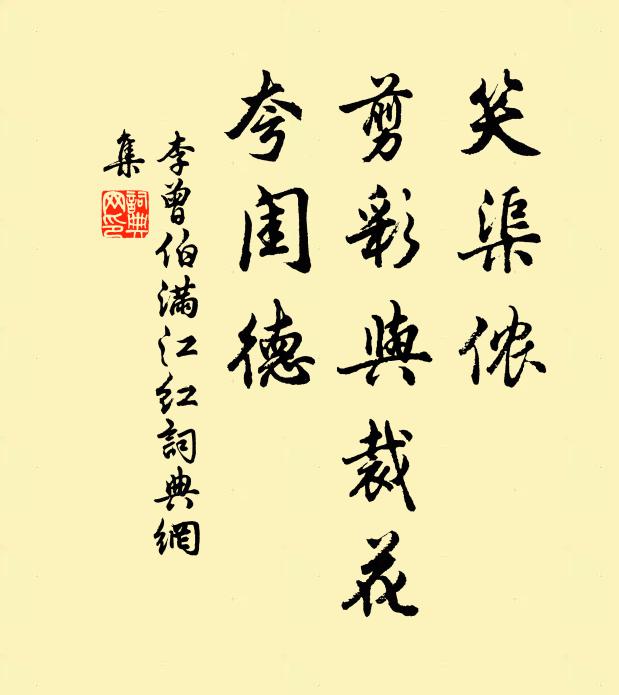 笑渠侬
剪彩與裁花
夸闺德
李曾伯满江红詞典網
集
詞典
网印